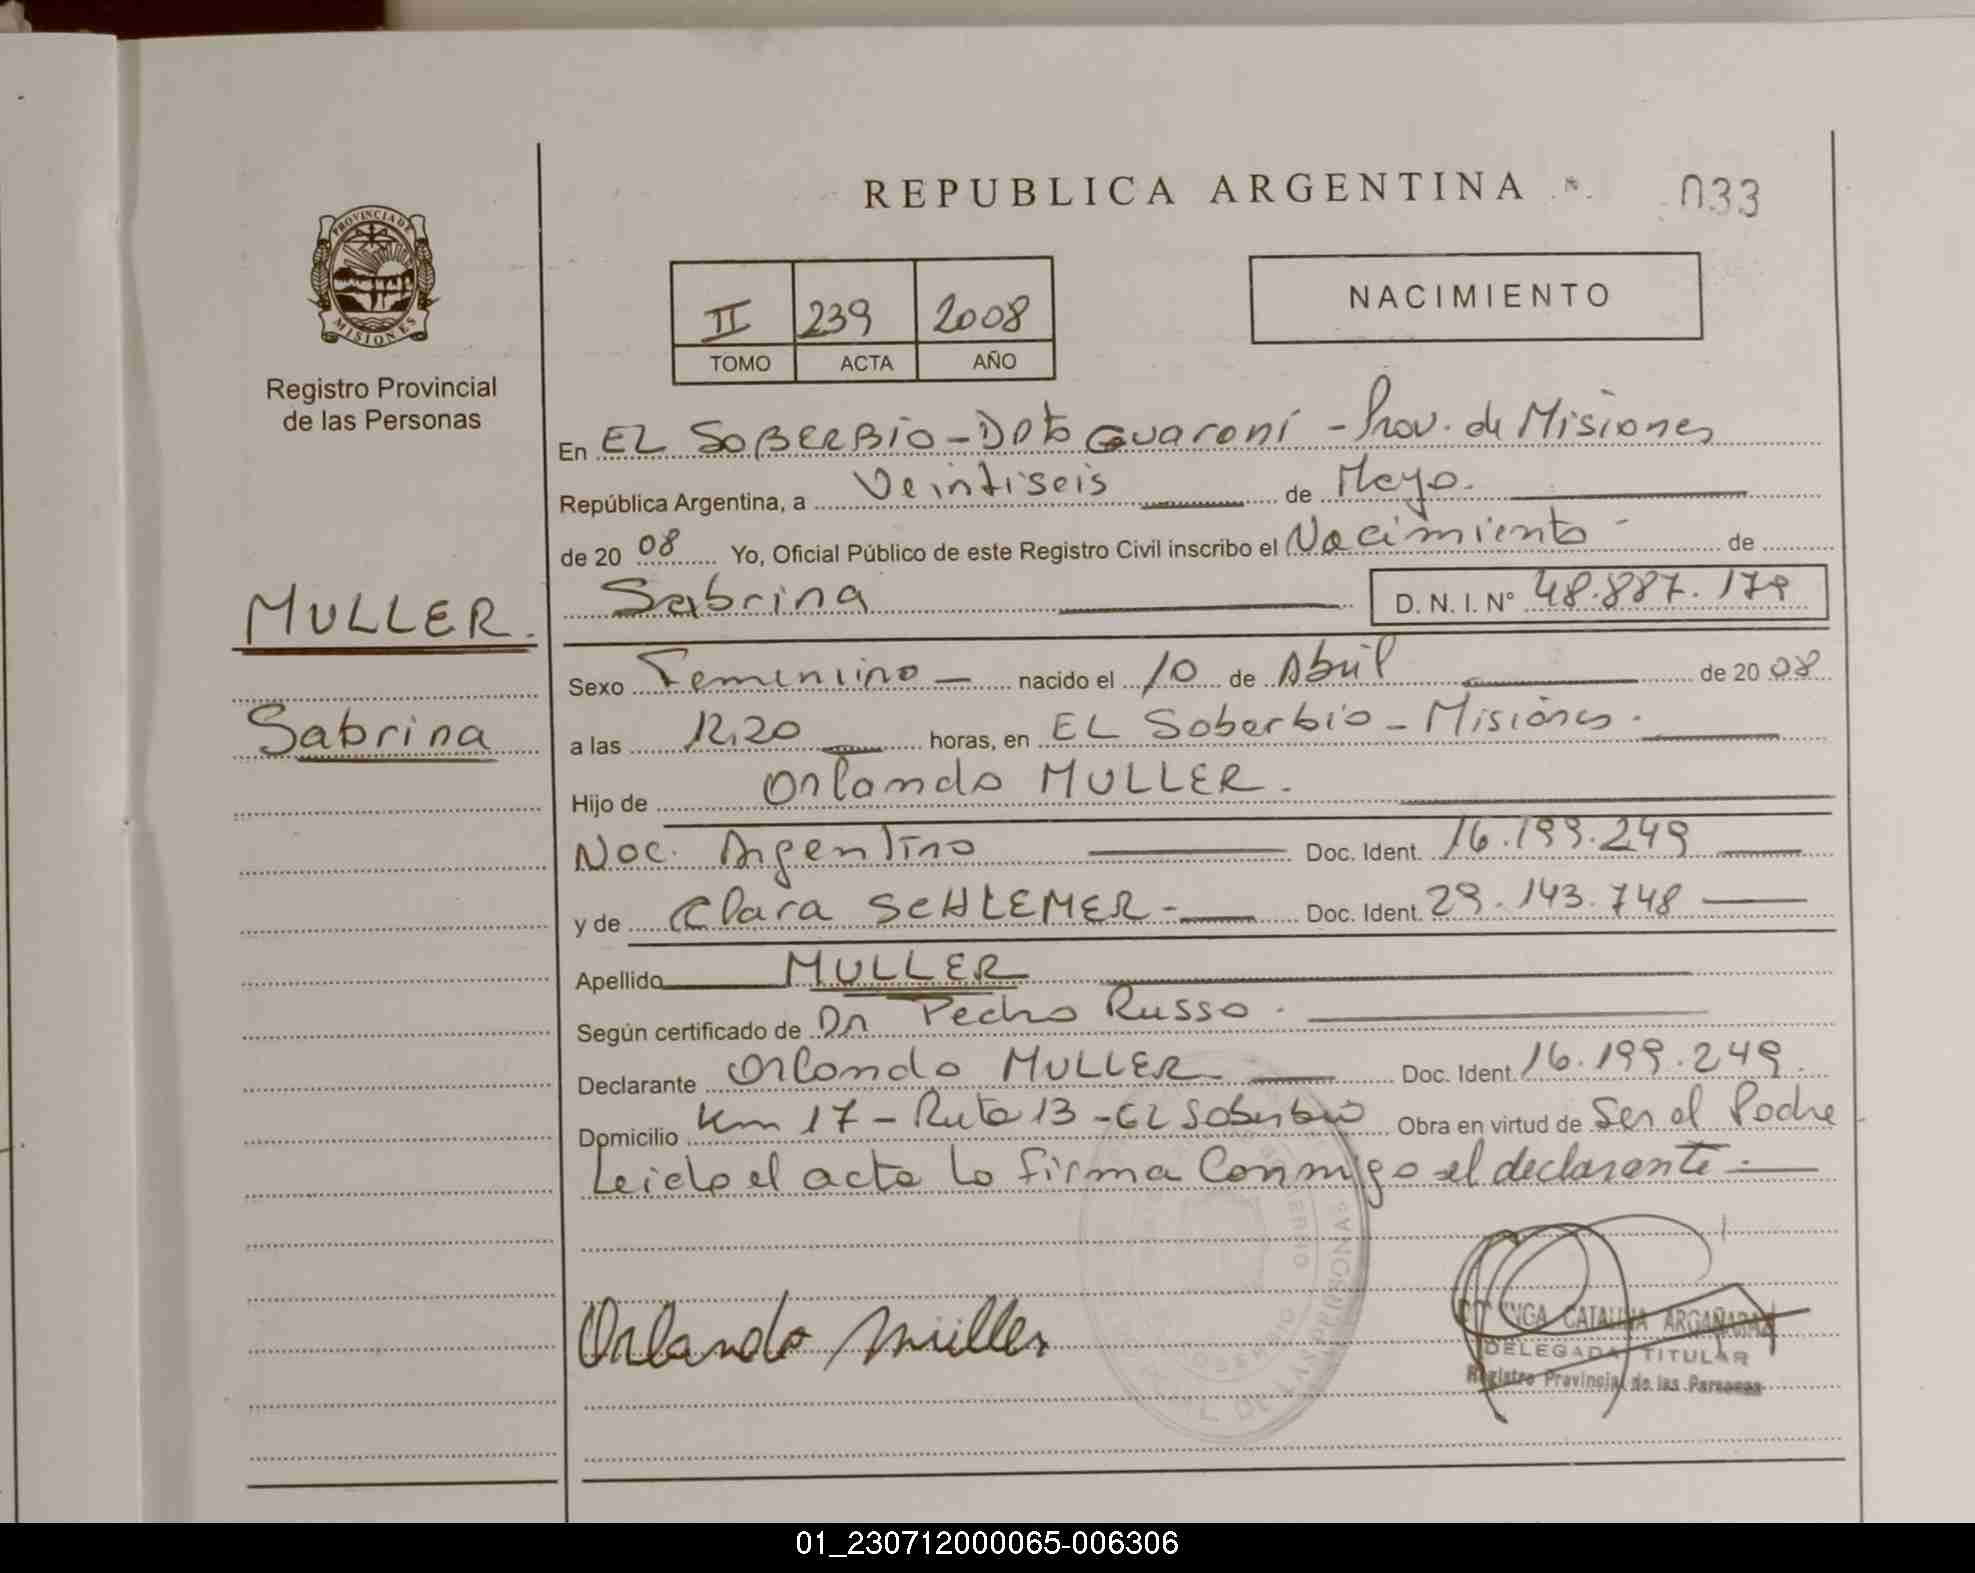 REPUBLICA ARGENTINA
033
PROVINCIA DE
MISIONES
Registro Provincial
de las Personas
II 239 2008
TOMO ACTA AÑO
NACIMIENTO
En EL SOBERBIO - Dpto Guaraní - Prov. de Misiones
República Argentina, a Veintiseis de Mayo.
de 20 08 Yo, Oficial Público de este Registro Civil inscribo el Nacimiento - de
Sabrina D. N. I. N° 48.887.179
MULLER.
Sabrina
Sexo Femenino - nacido el 10 de Abril de 20 08
a las 12,20 horas, en EL Soberbio - Misiones.
Hijo de Orlando MULLER.
Nac. Argentino Doc. Ident. 16.199.249
y de Clara SCHLEMER - Doc. Ident. 29.143.748
Apellido MULLER
Según certificado de Dr. Pedro Russo.
Declarante Orlando MULLER - Doc. Ident. 16.199.249.
Domicilio Km 17 - Ruta 13 - EL Soberbio Obra en virtud de Ser el Padre
Leida el acta la firma Conmigo el declarante -
Orlando Müller
CATALINA ARGAÑARAZ
DELEGADA TITULAR
Registro Provincial de las Personas
01_230712000065-006306